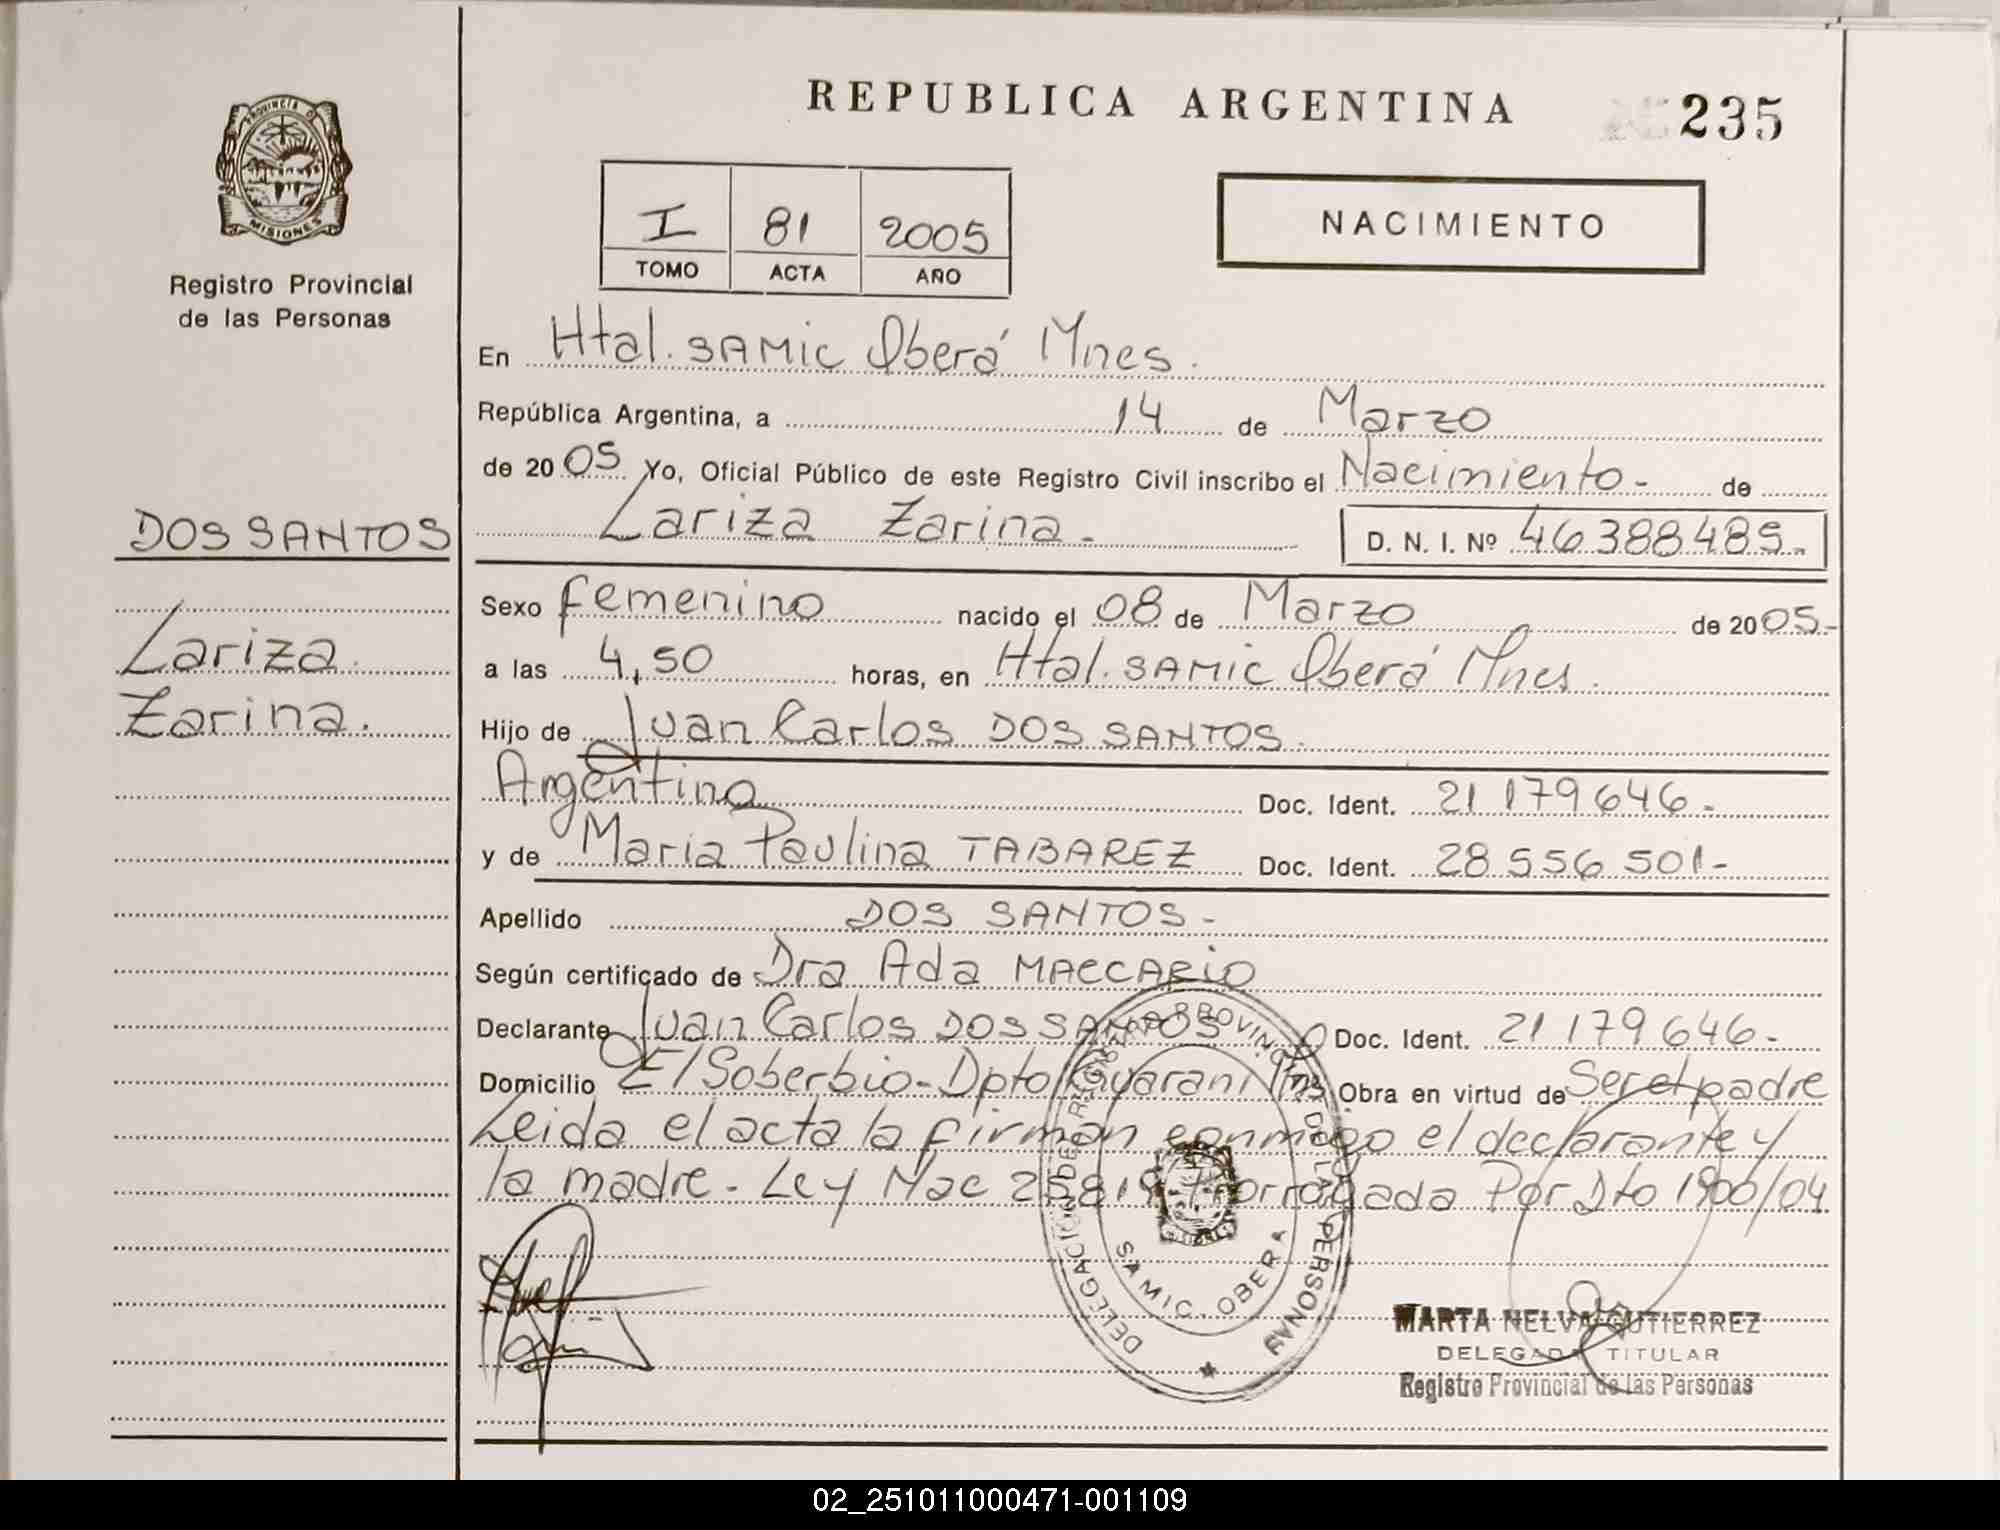 REPUBLICA ARGENTINA
235
PROVINCIA D
MISIONES
Registro Provincial
de las Personas
I 81 2005
TOMO ACTA AÑO
NACIMIENTO
En Htal. SAMIC Oberá Mnes.
República Argentina, a 14 de Marzo
de 2005 Yo, Oficial Público de este Registro Civil inscribo el Nacimiento - de
Lariza Zarina - D. N. I. Nº 46388485.-
DOS SANTOS
Lariza
Zarina.
Sexo femenino nacido el 08 de Marzo de 2005.-
a las 4,50 horas, en Htal. SAMIC Oberá Mnes.
Hijo de Juan Carlos DOS SANTOS.
Argentino Doc. Ident. 21 179 646.-
y de Maria Paulina TABAREZ Doc. Ident. 28 556 501-
Apellido DOS SANTOS -
Según certificado de Dra Ada MACCARIO
Declarante Juan Carlos DOS SANTOS Doc. Ident. 21 179 646-
Domicilio El Soberbio - Dpto Guarani Mnes Obra en virtud de Ser el padre
Leida el acta la firman conmigo el declarante y
la madre - Ley Nac 25819 Prorrogada Por Dto 1900/04
DELEGACION DE REGISTRO PROVINCIAL DE LAS PERSONAS
SAMIC. OBERA
MARTA NELVA GUTIERREZ
DELEGADA TITULAR
Registro Provincial de las Personas
02_251011000471-001109